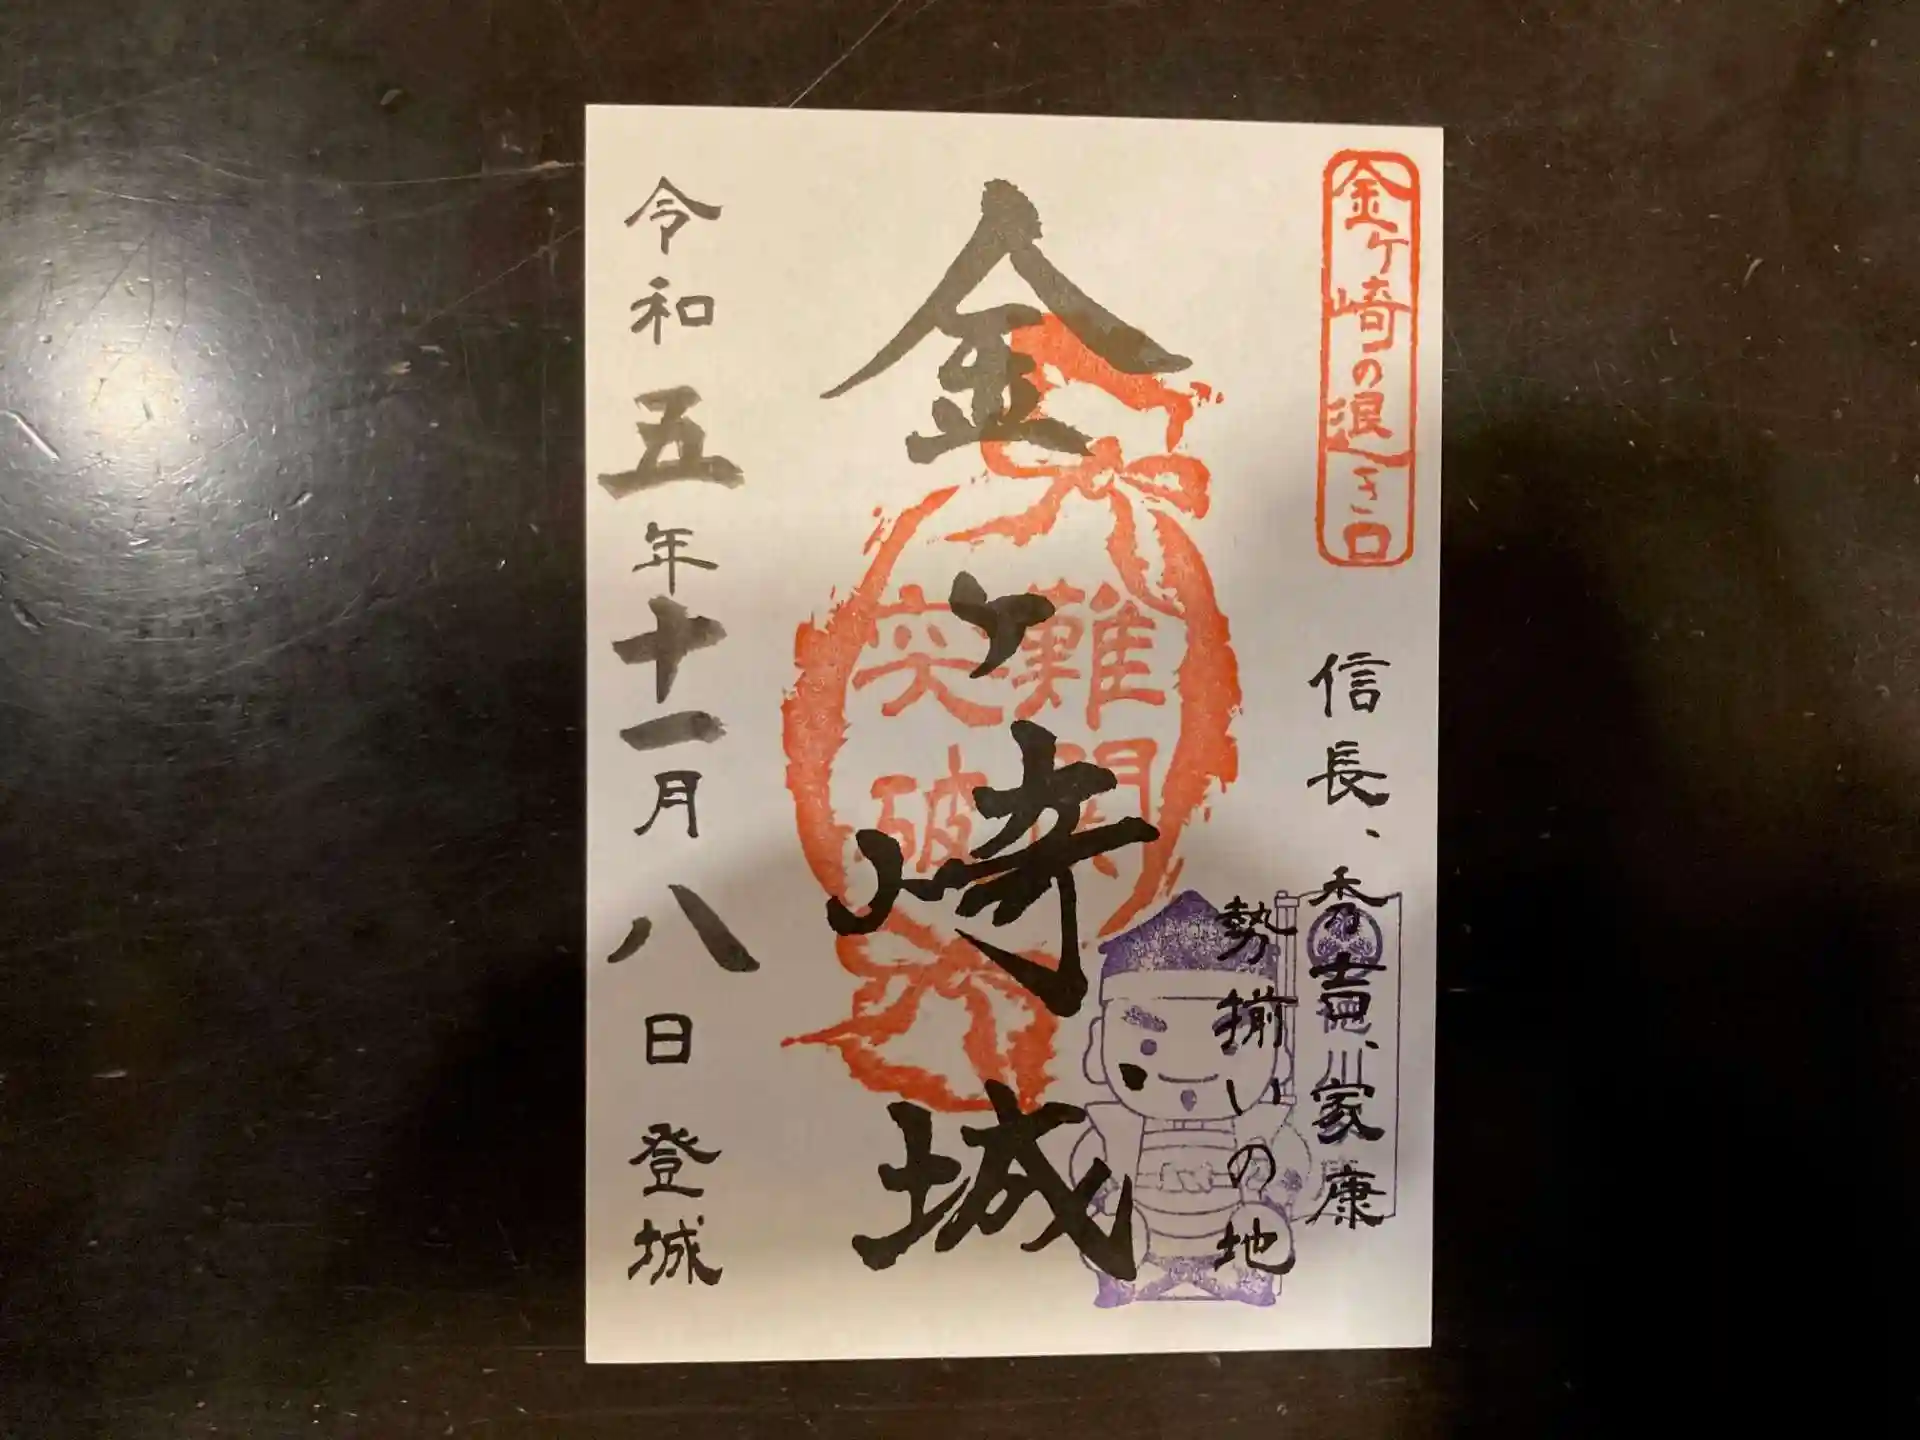 金ヶ崎の退き口
信長、秀吉、家康
勢揃いの地
徳川家康
難関
突破
金ヶ崎城
令和五年十一月八日登城